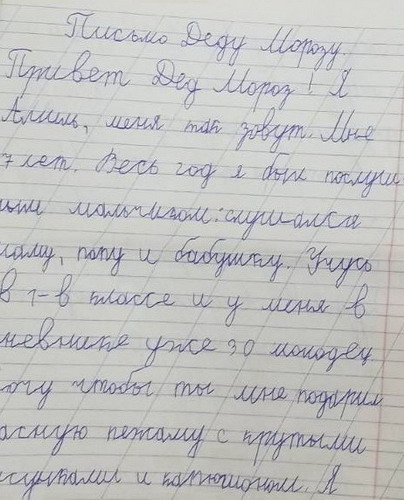 Письмо Деду Морозу
Привет Дед Мороз! Я
Алиль, меня так зовут. Мне
7 лет. Весь год я был послуш
ным мальчиком: слушался
маму, папу и бабушку. Учусь
в 1-в классе и у меня в
невнике уже 30 молодец
хочу чтобы ты мне подарил
асную пежаму с крутыми
исунками и капюшоном. Я